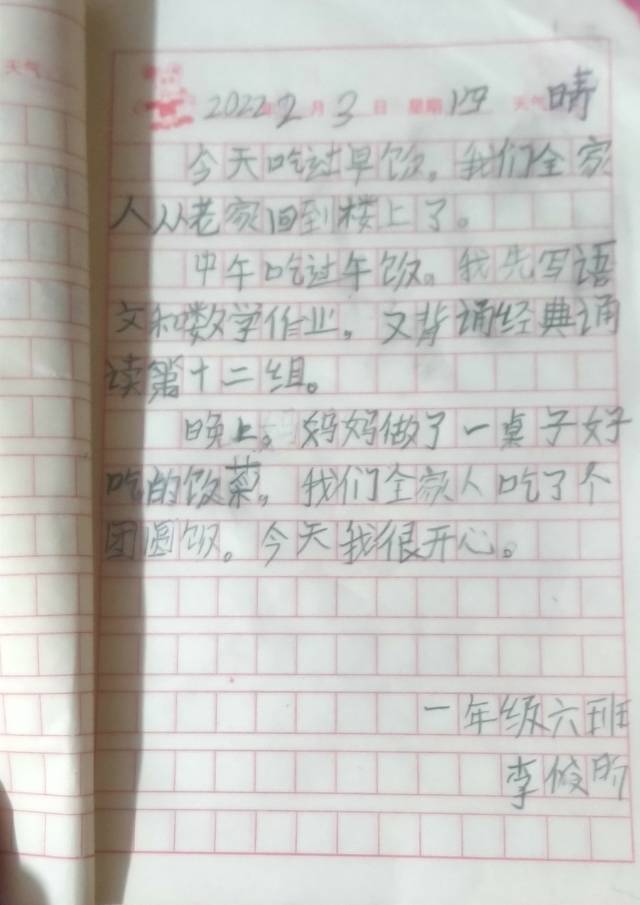 天气
2022年2月3日 星期四 天气晴
今天吃过早饭。我们全家
人从老家回到楼上了。
中午吃过午饭。我先写语
文和数学作业。又背诵经典诵
读第十二组。
晚上。妈妈做了一桌子好
吃的饭菜。我们全家人吃了个
团圆饭。今天我很开心。
一年级六班
李俊昕